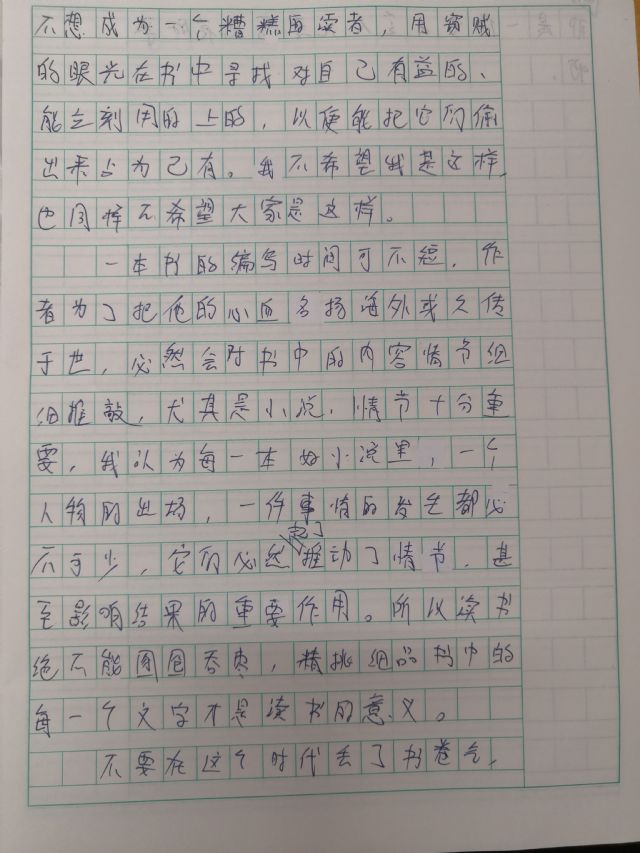 不想成为一个糟糕的读者，用窃贼
的眼光在书中寻找对自己有益的、
能立刻用的上的，以便能把它们偷
出来占为己有。我不希望我是这样，
也同样不希望大家是这样。
一本书的编写时间可不短，作
者为了把他的心血名扬海外或久传
于世，必然会对书中的内容情节细
细推敲，尤其是小说，情节十分重
要，我认为每一本好小说里，一个
人物的出场，一件事情的发生都必
不可少，它们必然起了推动了情节，甚
至影响结果的重要作用。所以读书
绝不能囫囵吞枣，精挑细品书中的
每一个文字才是读书的意义。
不要在这个时代丢了书卷气，